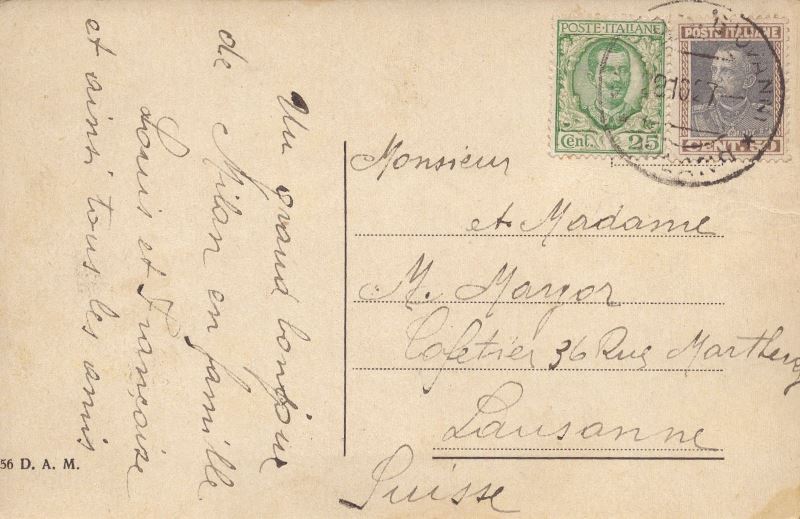 Un grand bonjour
de Milan en famille
Louis et Françoise
et ainsi tous les amis
56 D. A. M.
POSTE·ITALIANE
Cent. 25
POSTE ITALIANE
CENT. 50
28 10 27
Monsieur
et Madame
M. Mayor
Cafetier 36 Rue
Lausanne
Suisse